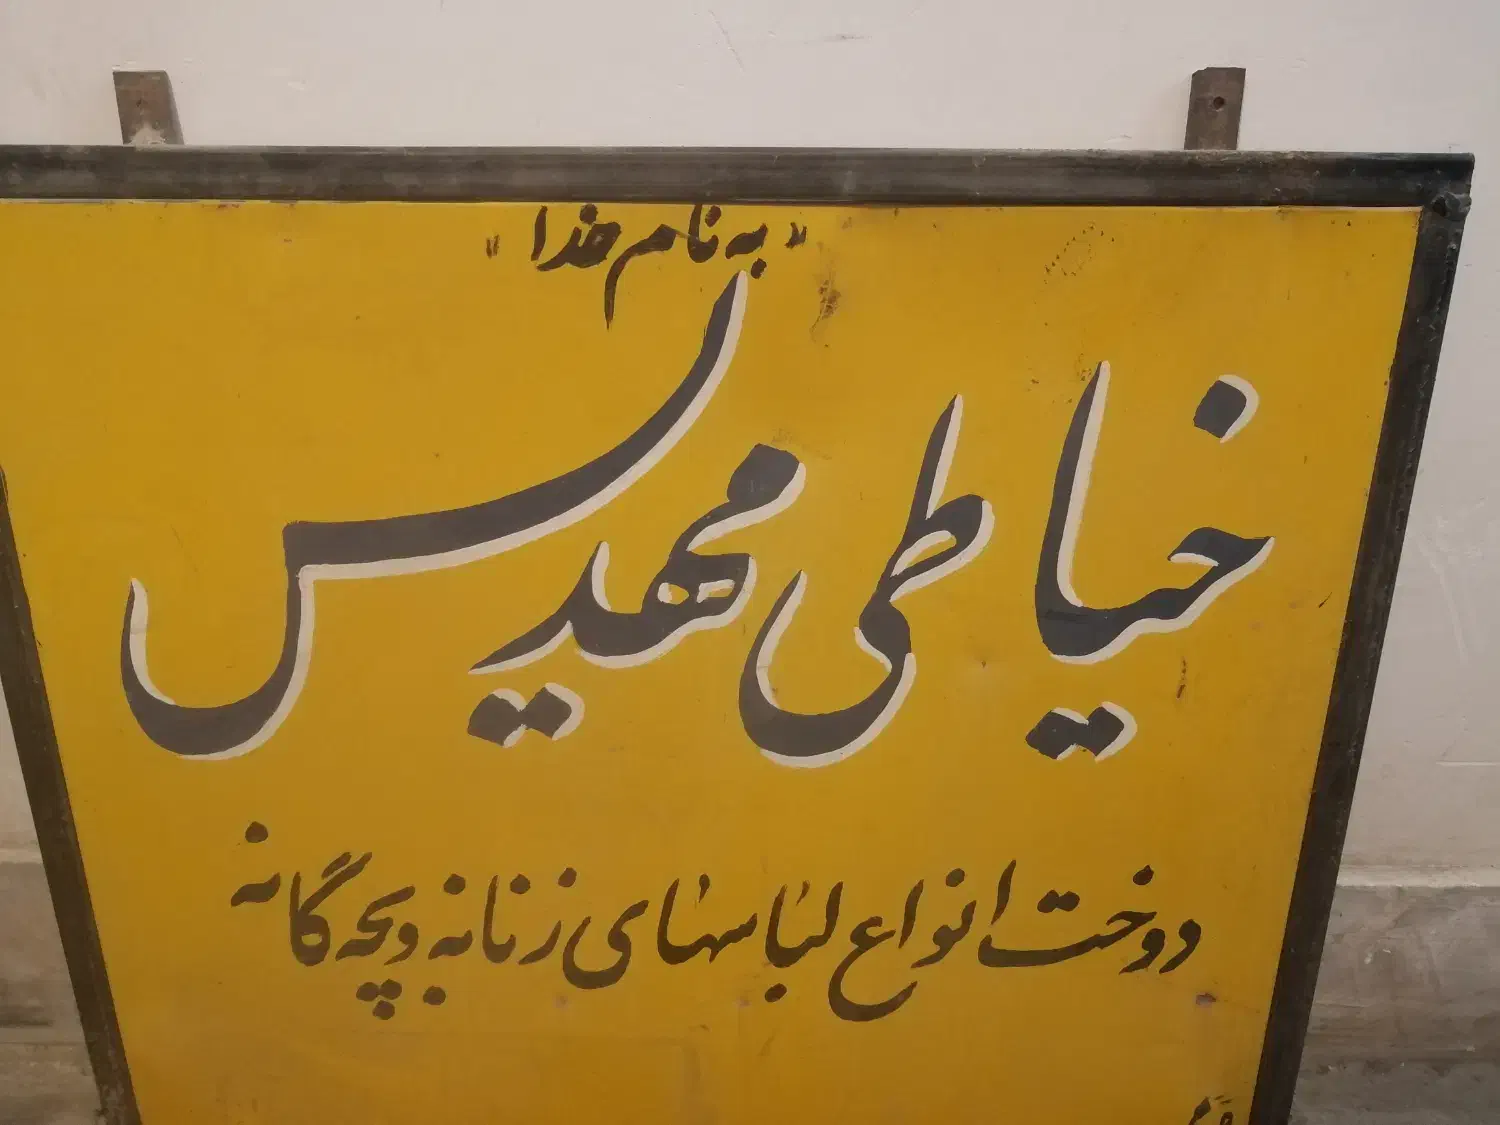 "به نام خدا"
خیاطی مهدیس
دوخت انواع لباسهای زنانه و بچه گانه